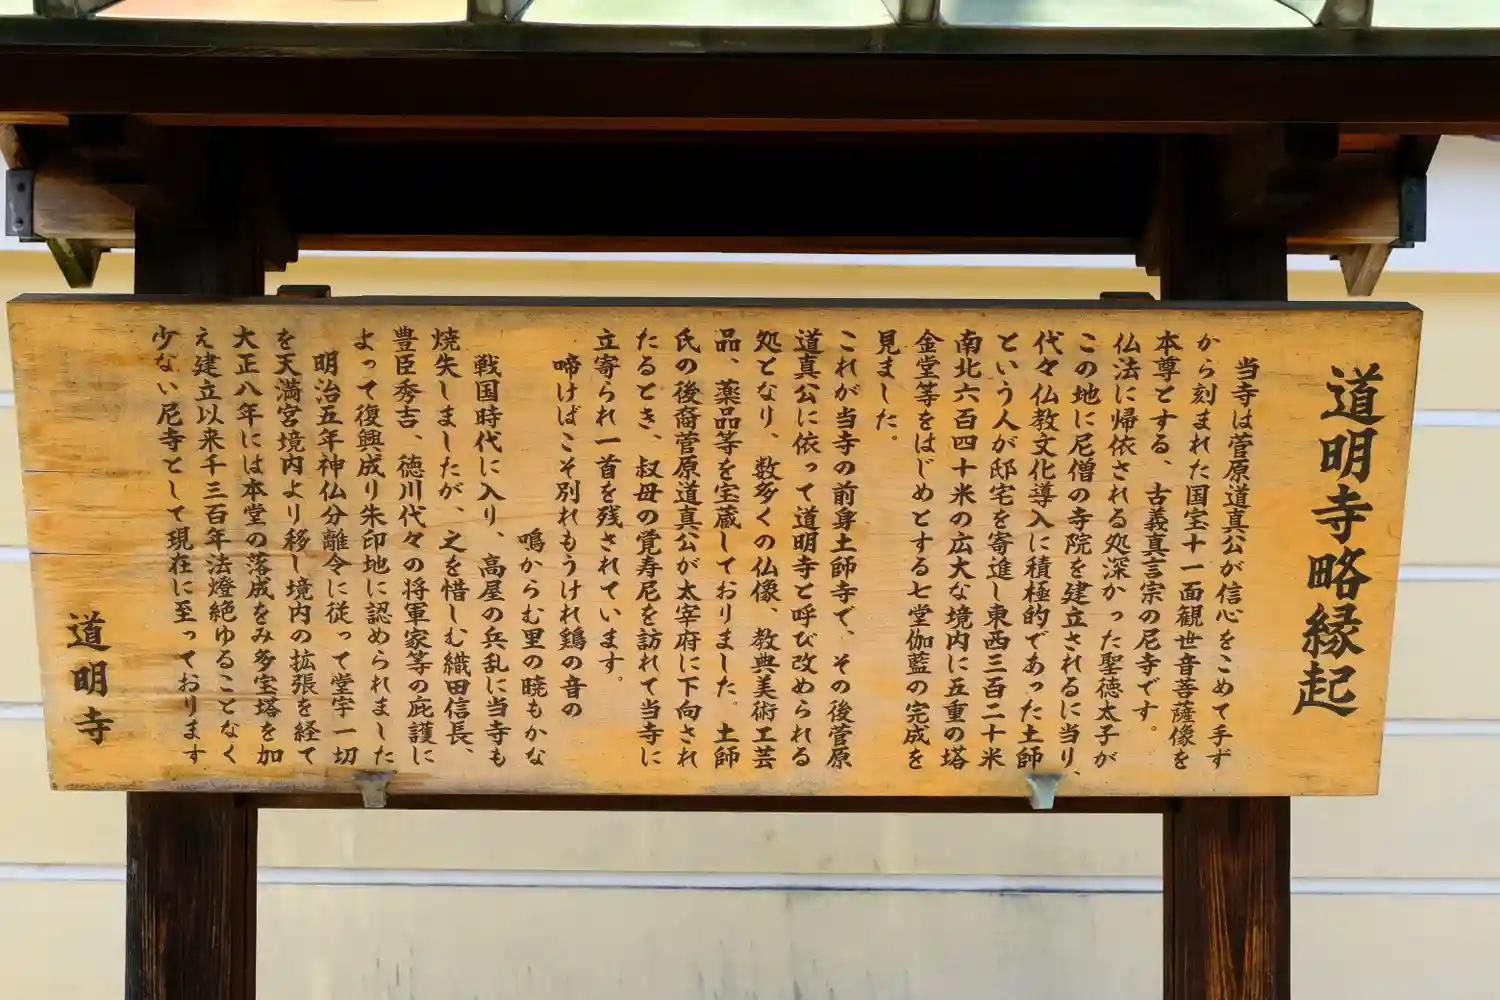 道明寺略縁起
当寺は菅原道真公が信心をこめて手ず
から刻まれた国宝十一面観世音菩薩像を
本尊とする、古義真言宗の尼寺です。
仏法に帰依される処深かった聖徳太子が
この地に尼僧の寺院を建立されるに当り、
代々仏教文化導入に積極的であった土師
という人が邸宅を寄進し東西三百二十米
南北六百四十米の広大な境内に五重の塔
金堂等をはじめとする七堂伽藍の完成を
見ました。
これが当寺の前身土師寺で、その後菅原
道真公に依って道明寺と呼び改められる
処となり、数多くの仏像、教典美術工芸
品、薬品等を宝蔵しておりました。土師
氏の後裔菅原道真公が太宰府に下向され
たるとき、叔母の覚寿尼を訪れて当寺に
立寄られ一首を残されています。
啼けばこそ別れもうけれ鶏の音の
鳴からむ里の暁もかな
戦国時代に入り、高屋の兵乱に当寺も
焼失しましたが、之を惜しむ織田信長、
豊臣秀吉、徳川代々の将軍家等の庇護に
よって復興成り朱印地に認められました
明治五年神仏分離令に従って堂宇一切
を天満宮境内より移し境内の拡張を経て
大正八年には本堂の落成をみ多宝塔を加
え建立以来千三百年法燈絶ゆることなく
少ない尼寺として現在に至っております
道明寺